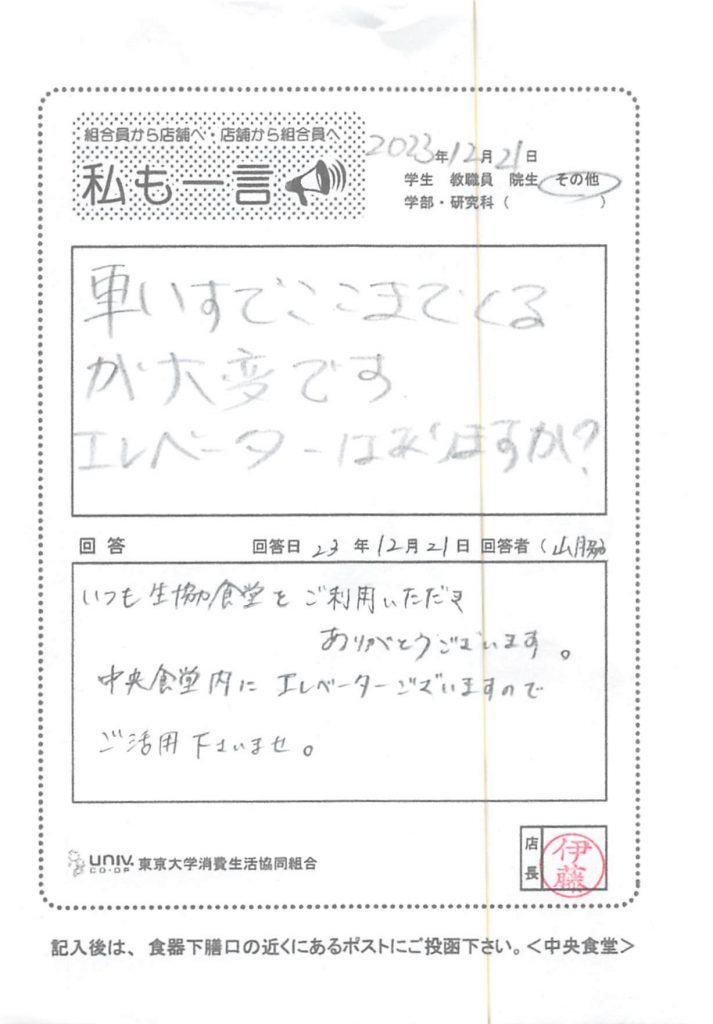 組合員から店舗へ・店舗から組合員へ
私も一言
2023年12月21日
学生 教職員 院生 その他
学部・研究科（　　　　　　）
車いすでここまでくる
が大変です
エレベーターはありますか?
回答 回答日 23年12月21日 回答者（山脇）
いつも生協食堂をご利用いただき
ありがとうございます。
中央食堂内にエレベーターございますので
ご活用下さいませ。
UNIV. CO-OP 東京大学消費生活協同組合
店長 伊藤
記入後は、食器下膳口の近くにあるポストにご投函下さい。＜中央食堂＞